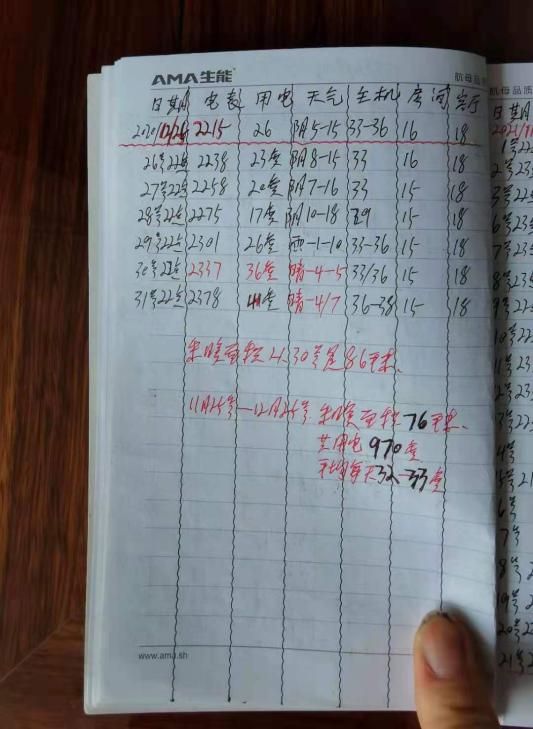 AMA生能 航母品质
日期 电表 用电 天气 主机 房间 客厅
12/25 2215 26 阴5-15 33-36 16 18
26号22点 2238 23度 阴8-15 33 16 18
27号22点 2258 20度 阴7-16 33 15 18
28号22点 2275 17度 阴10-18 29 15 18
29号22点 2301 26度 雨-1-10 33-36 15 18
30号22点 2337 36度 晴-4-5 33/36 15 18
31号22点 2378 41度 晴-4/7 36-38 15 18
采暖面积 30号是86平米.
11月25号—12月25号 采暖面积76平米.
共用电970度
平均每天32-33度
www.ama.sh
航母品质
日期
1号22
2号23
3号22
6号23
7号23
8号23
9号22
10号22
11号23
12号23
13号22
14号
15号21
16号
17号
18号2
19号2
20号22
21号2